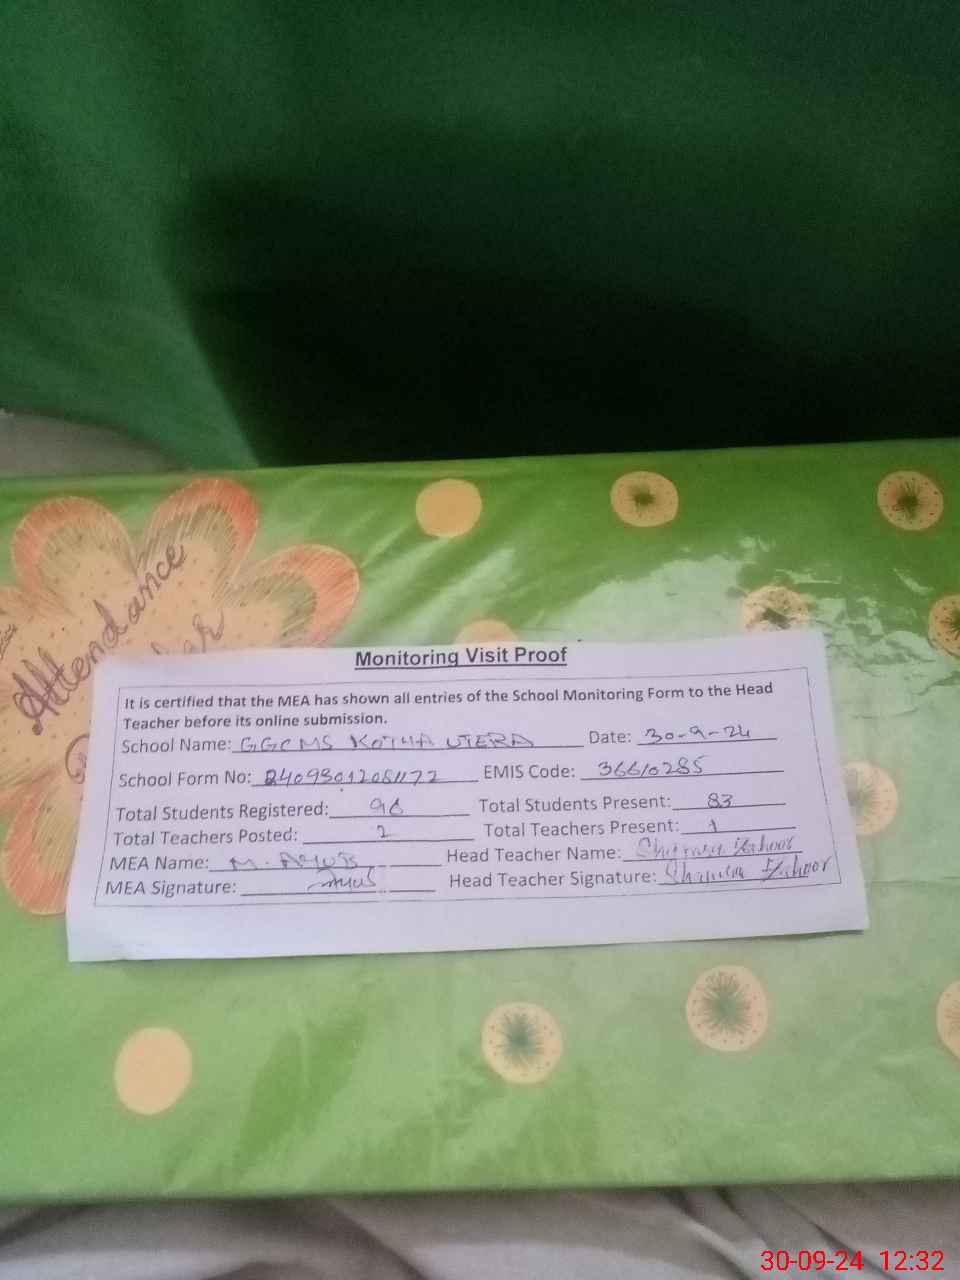 Attendance
Monitoring Visit Proof
It is certified that the MEA has shown all entries of the School Monitoring Form to the Head
Teacher before its online submission.
School Name: GGCMS KOTHA UTERA Date: 30-9-24
School Form No: EMIS Code: 36610285
Total Students Registered: 96 Total Students Present: 83
Total Teachers Posted: 2 Total Teachers Present: 1
MEA Name: M. AYUB Head Teacher Name: Zahoor
MEA Signature: Head Teacher Signature: Zahoor
30-09-24 12:32